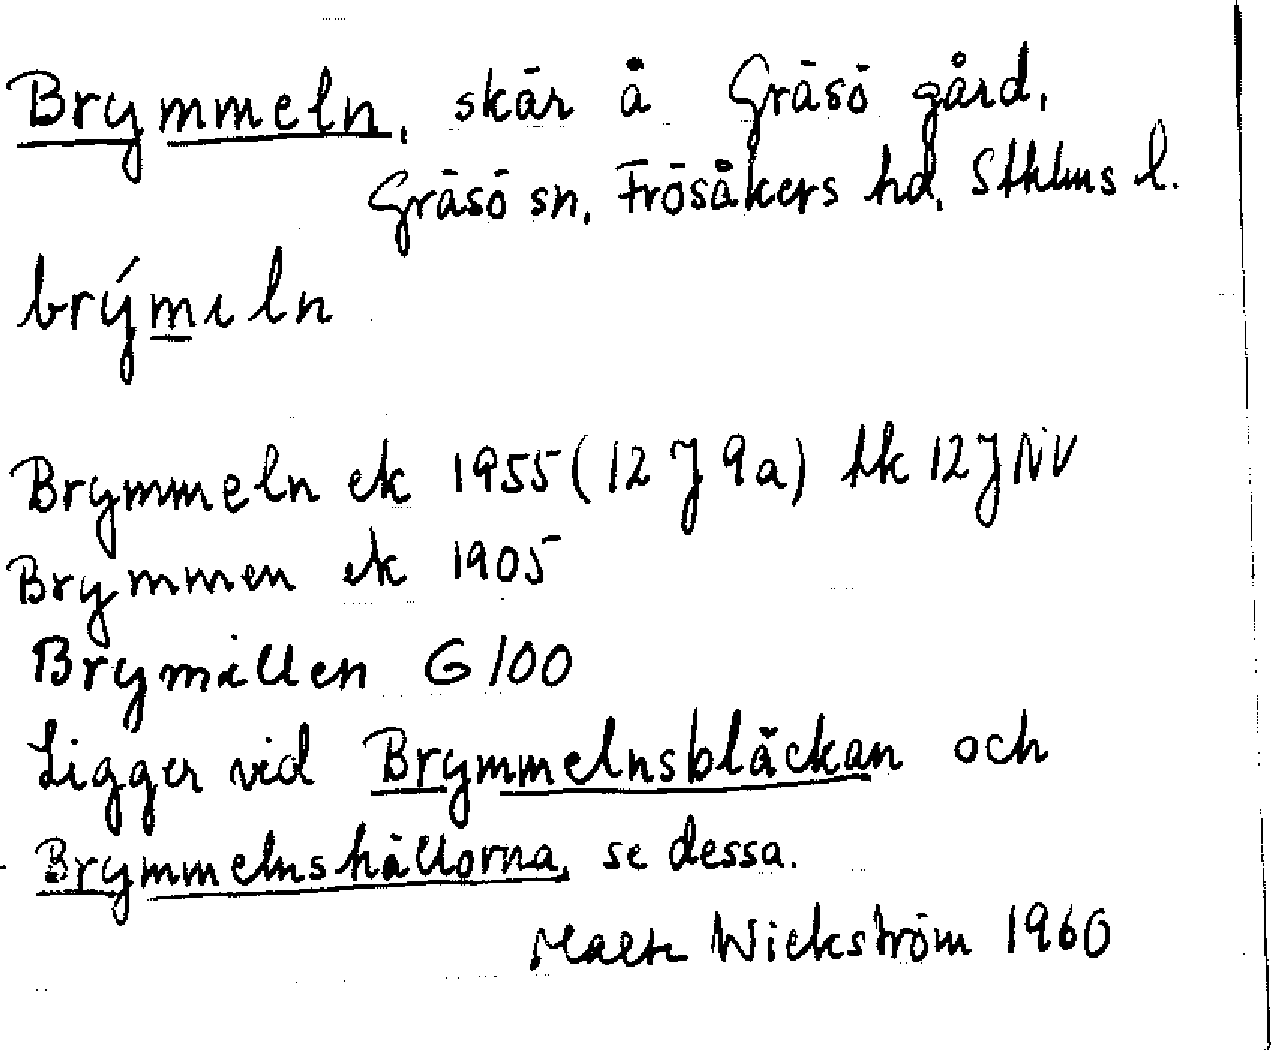 Brymmeln, skär å Gräsö gård,
Gräsö sn, Frösåkers hd, Sthlms l.
brýmeln
Brymmeln ek 1955 (12 J 9a) tk 12 J NV
Brymmen ek 1905
Brymällen G 100
Ligger vid Brymmelnsbläckan och
Brymmelnshällorna, se dessa.
Wickström 1960